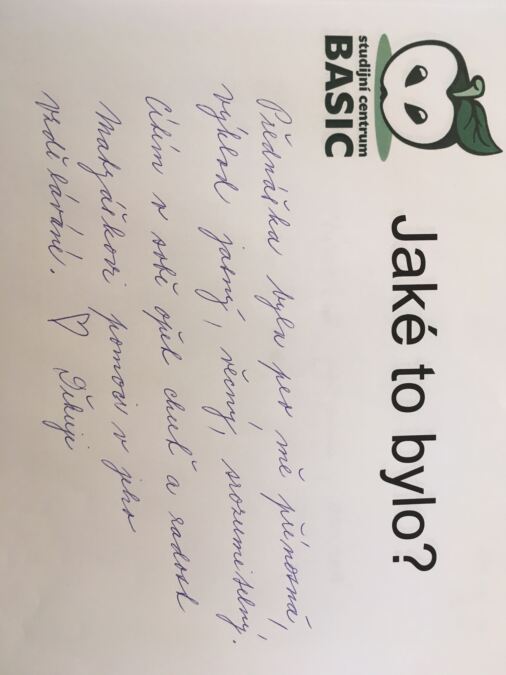 studijní centrum
BASIC
Jaké to bylo?
Přednáška byla pro mě přínosná,
výklad jasný, věcný, srozumitelný.
Cítím v sobě opět chuť a radost
pomoci v jeho
vzdělávání. ♡ Děkuji